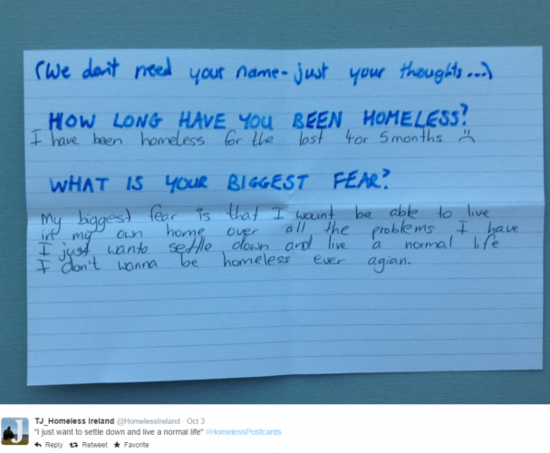 (We don't need your name - just your thoughts...)
HOW LONG HAVE YOU BEEN HOMELESS?
I have been homeless for the last 4or 5months :(
WHAT IS YOUR BIGGEST FEAR?
My biggest fear is that I wount be able to live
in my own home over all the problems I have
I just wanto settle down and live a normal life
I don't wanna be homeless ever agian.
TJ_Homeless Ireland @HomelessIreland · Oct 3
"I just want to settle down and live a normal life" #HomelessPostcards
Reply Retweet Favorite